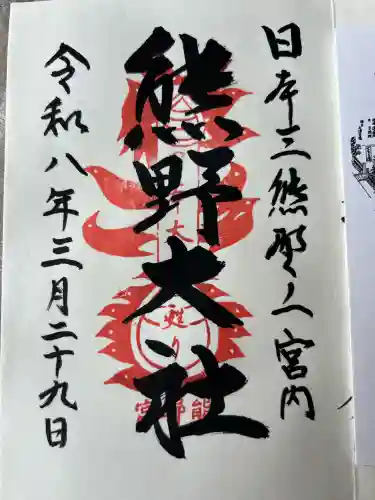 日本三熊野之宮内
熊野大社
令和八年三月二十九日
大
甦り
熊野宮